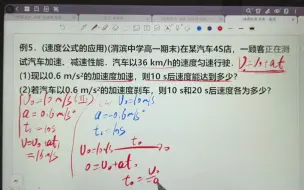 例5．(速度公式的应用)(渭滨中学高一期末)在某汽车4S店，一顾客正在测
试汽车加速、减速性能．汽车以36 km/h的速度匀速行驶．
V=V₀+at
(1)现以0.6 m/s²的加速度加速，则10 s后速度能达到多少?
(2)若汽车以0.6 m/s²刹车，则10 s和20 s后速度各为多少?
a=0.6m/s²
t₁=10s
V=V₀+at₁
=16m/s
V₀=10m/s
a=-0.6m/s²
t₁=10s
V₀=10m/s
t₀
0=V₀+at₀